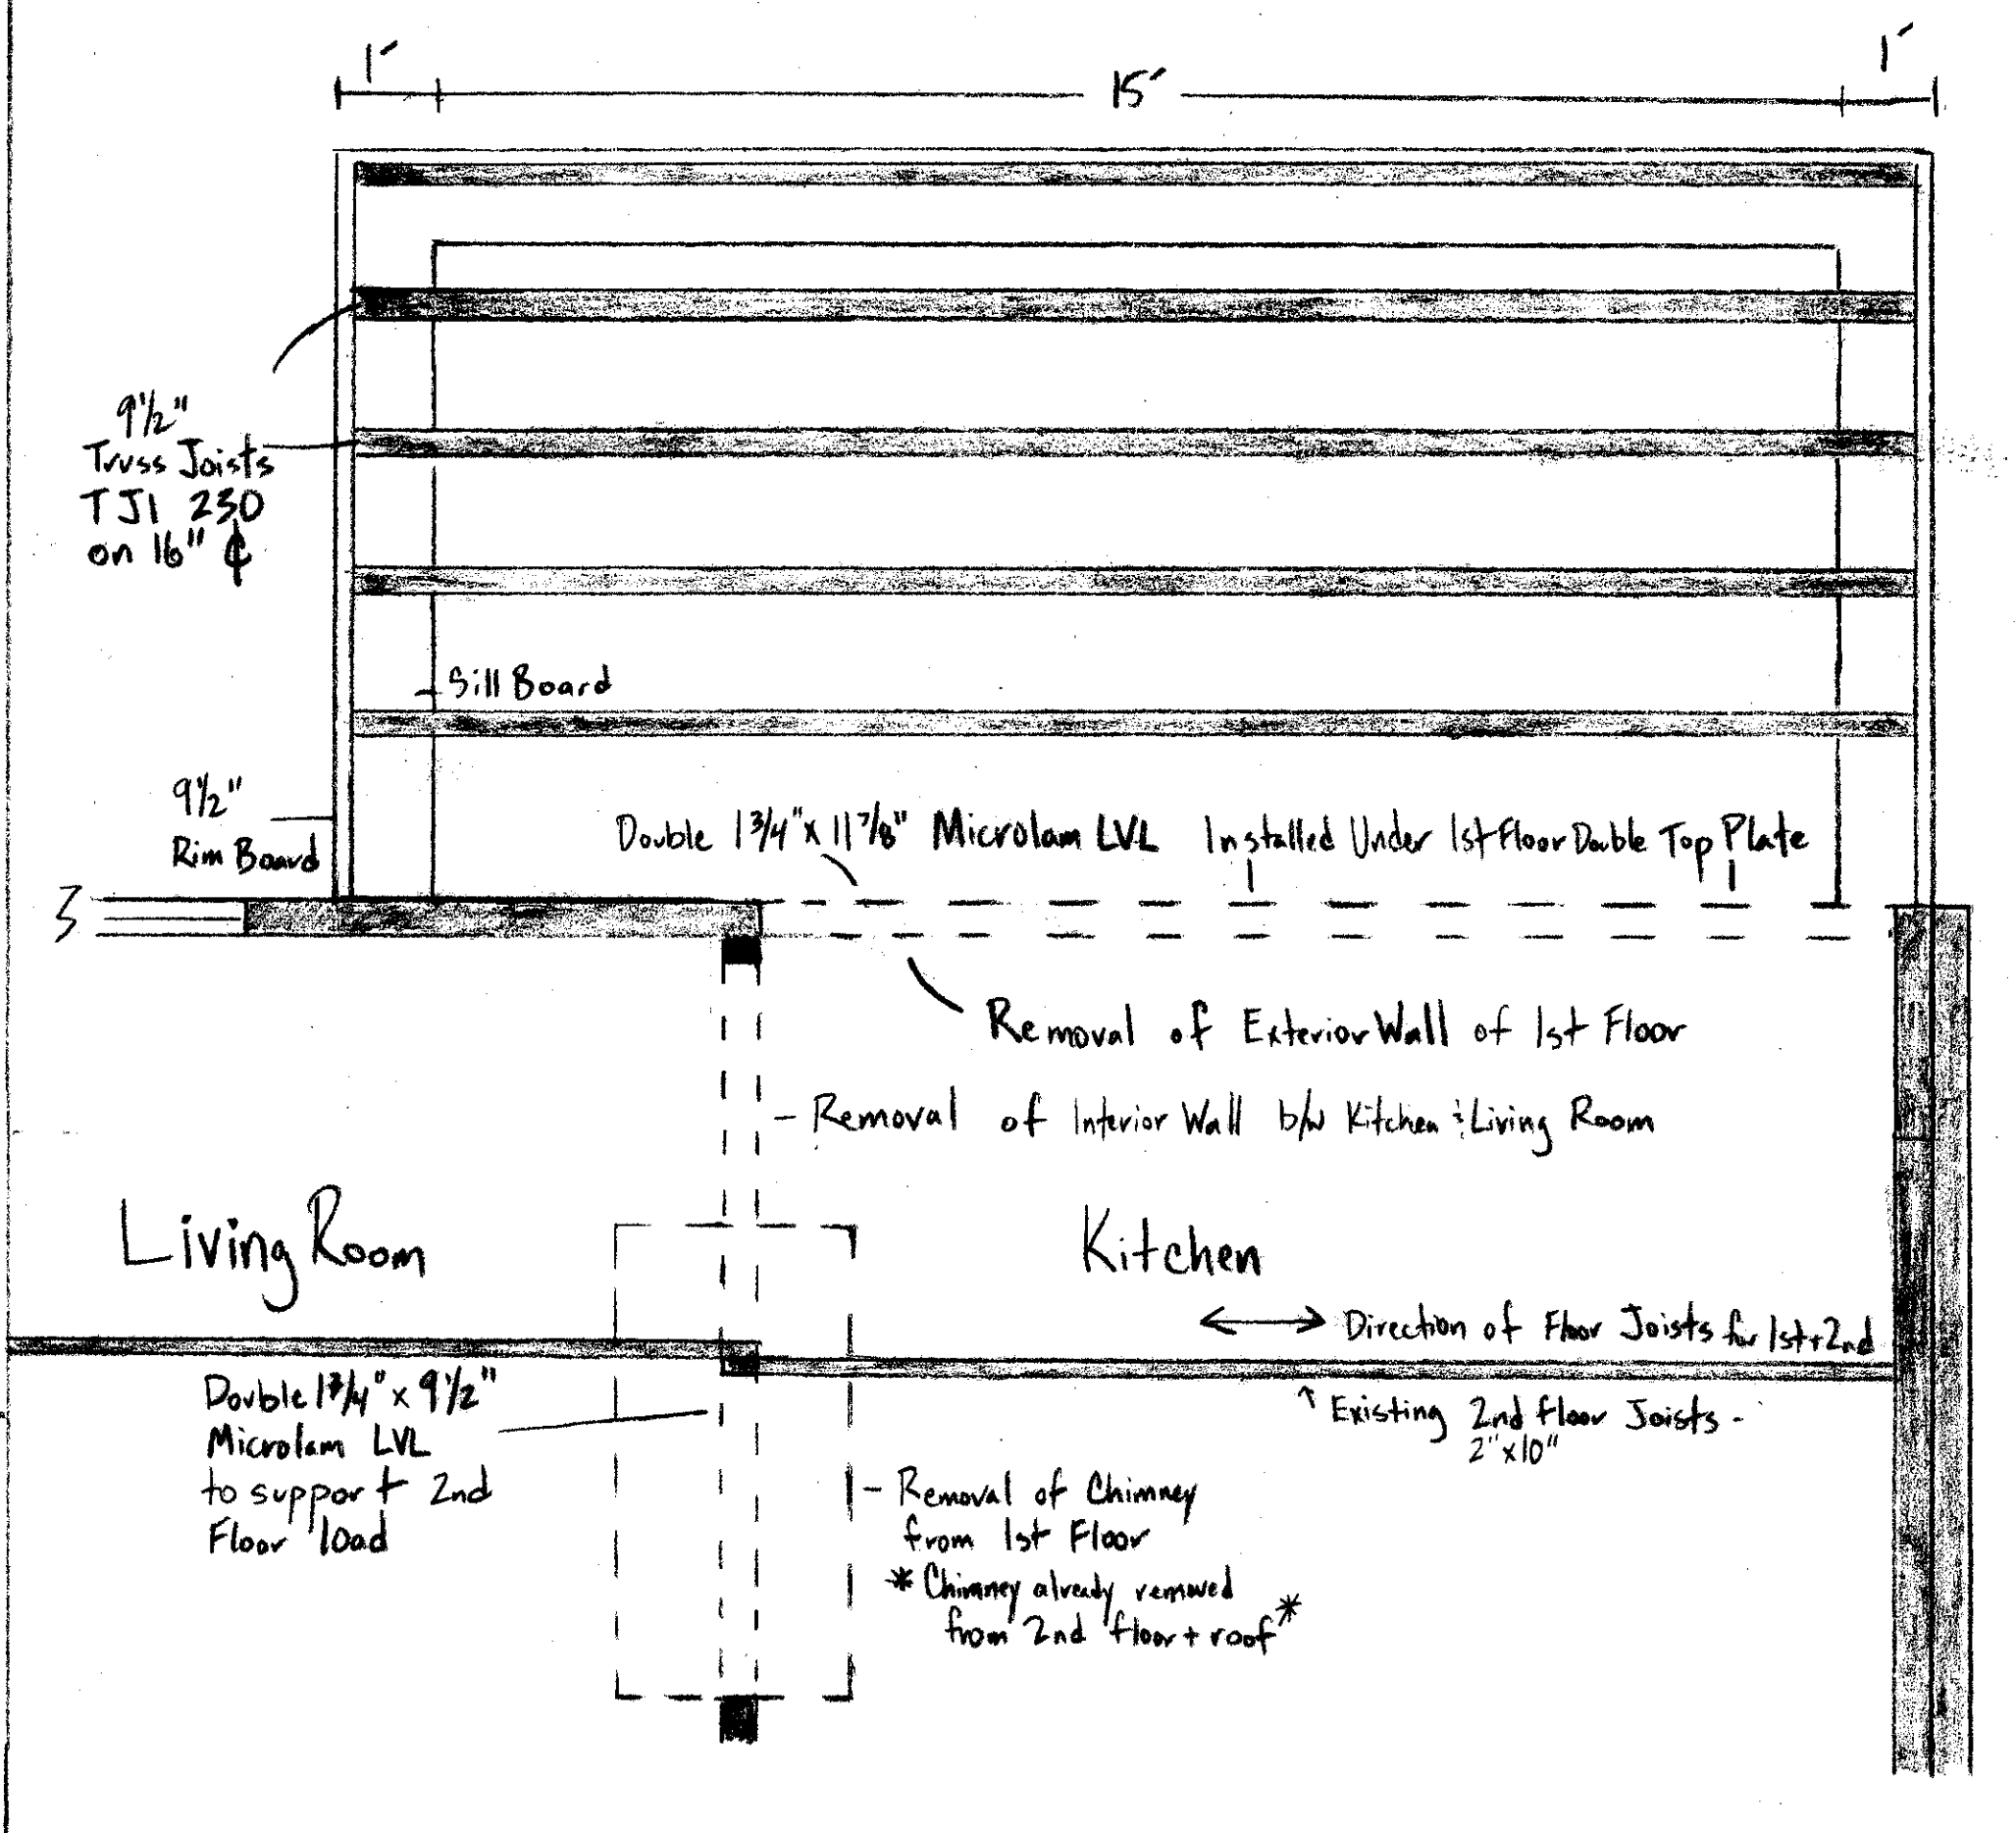 1'
15'
1'
9½"
Truss Joists
TJI 230
on 16" ℄
Sill Board
9½"
Rim Board
Double 1¾" x 11⅞" Microlam LVL Installed Under 1st Floor Double Top Plate
Removal of Exterior Wall of 1st Floor
- Removal of Interior Wall b/w Kitchen & Living Room
Living Room
Kitchen
↔ Direction of Floor Joists for 1st + 2nd
Double 1¾" x 9½"
Microlam LVL
to support 2nd
Floor load
↑ Existing 2nd floor Joists -
2" x 10"
- Removal of Chimney
from 1st Floor
* Chimney already removed
from 2nd floor + roof *